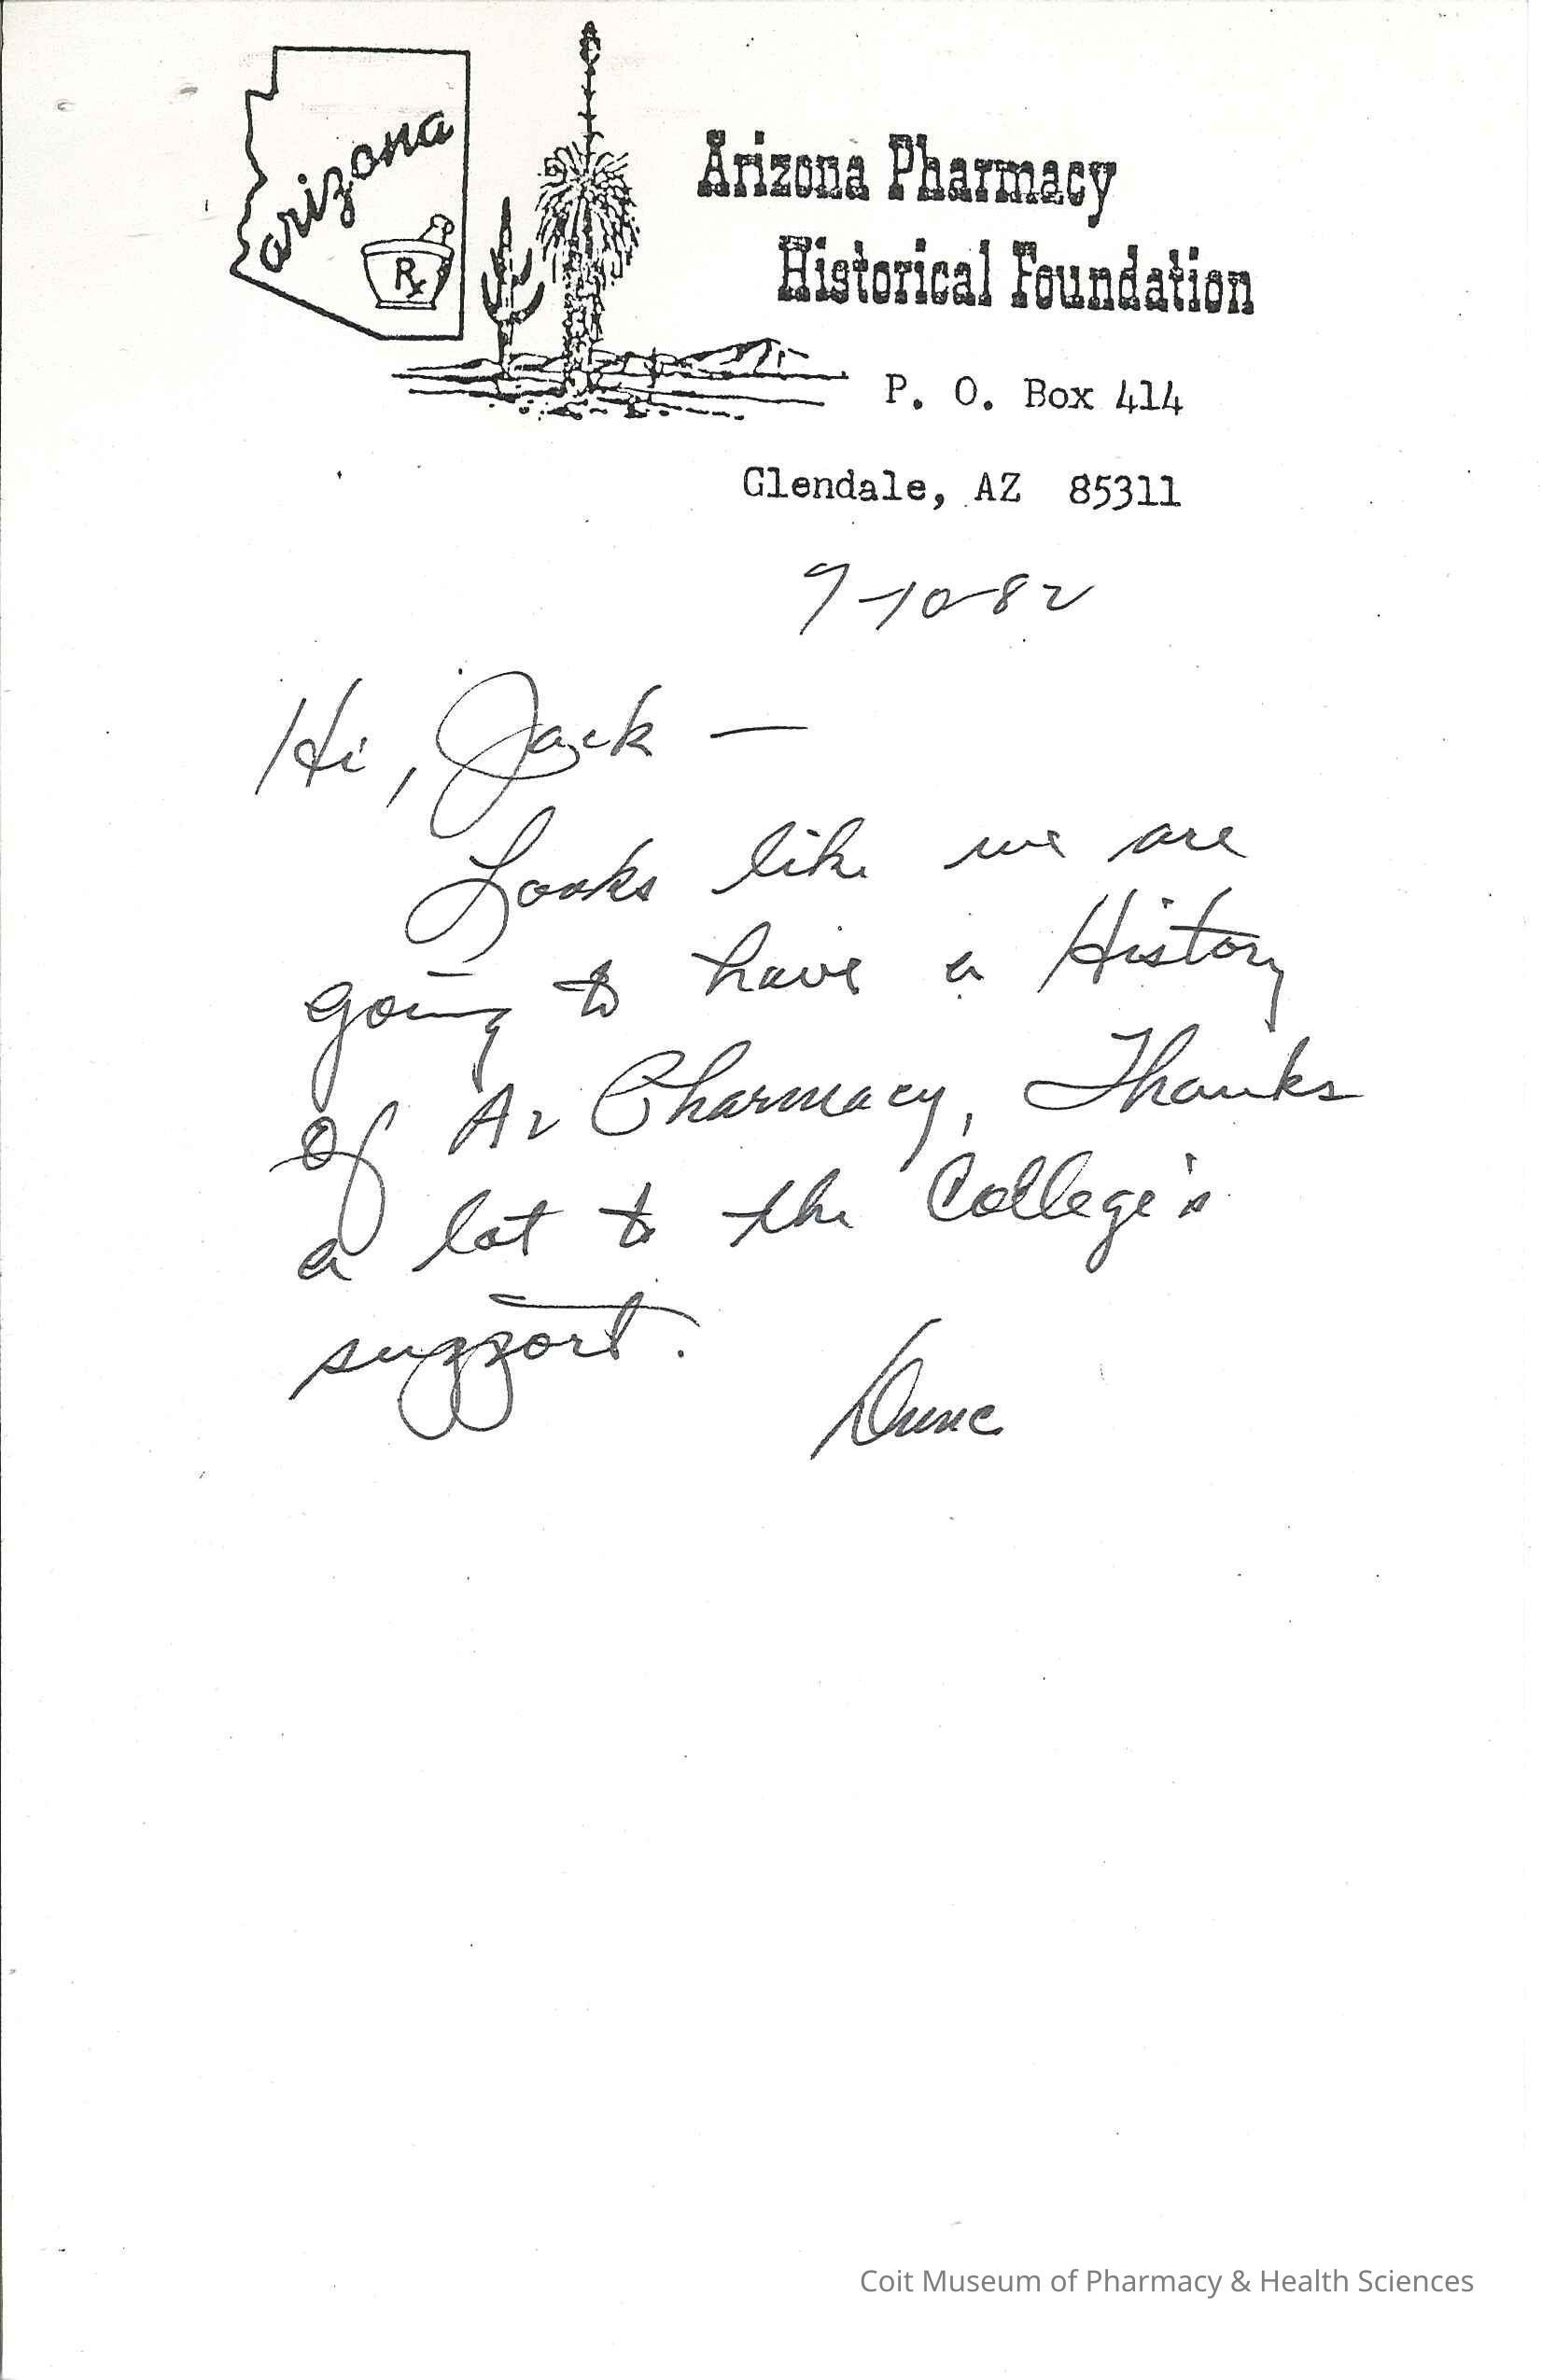 arizona
Rx
Arizona Pharmacy
Historical Foundation
P. O. Box 414
Glendale, AZ 85311
9-10-82
Hi, Jack —
Looks like we are
going to have a History
of Az Pharmacy, Thanks
a lot to the College's
support.
Dunc
Coit Museum of Pharmacy & Health Sciences